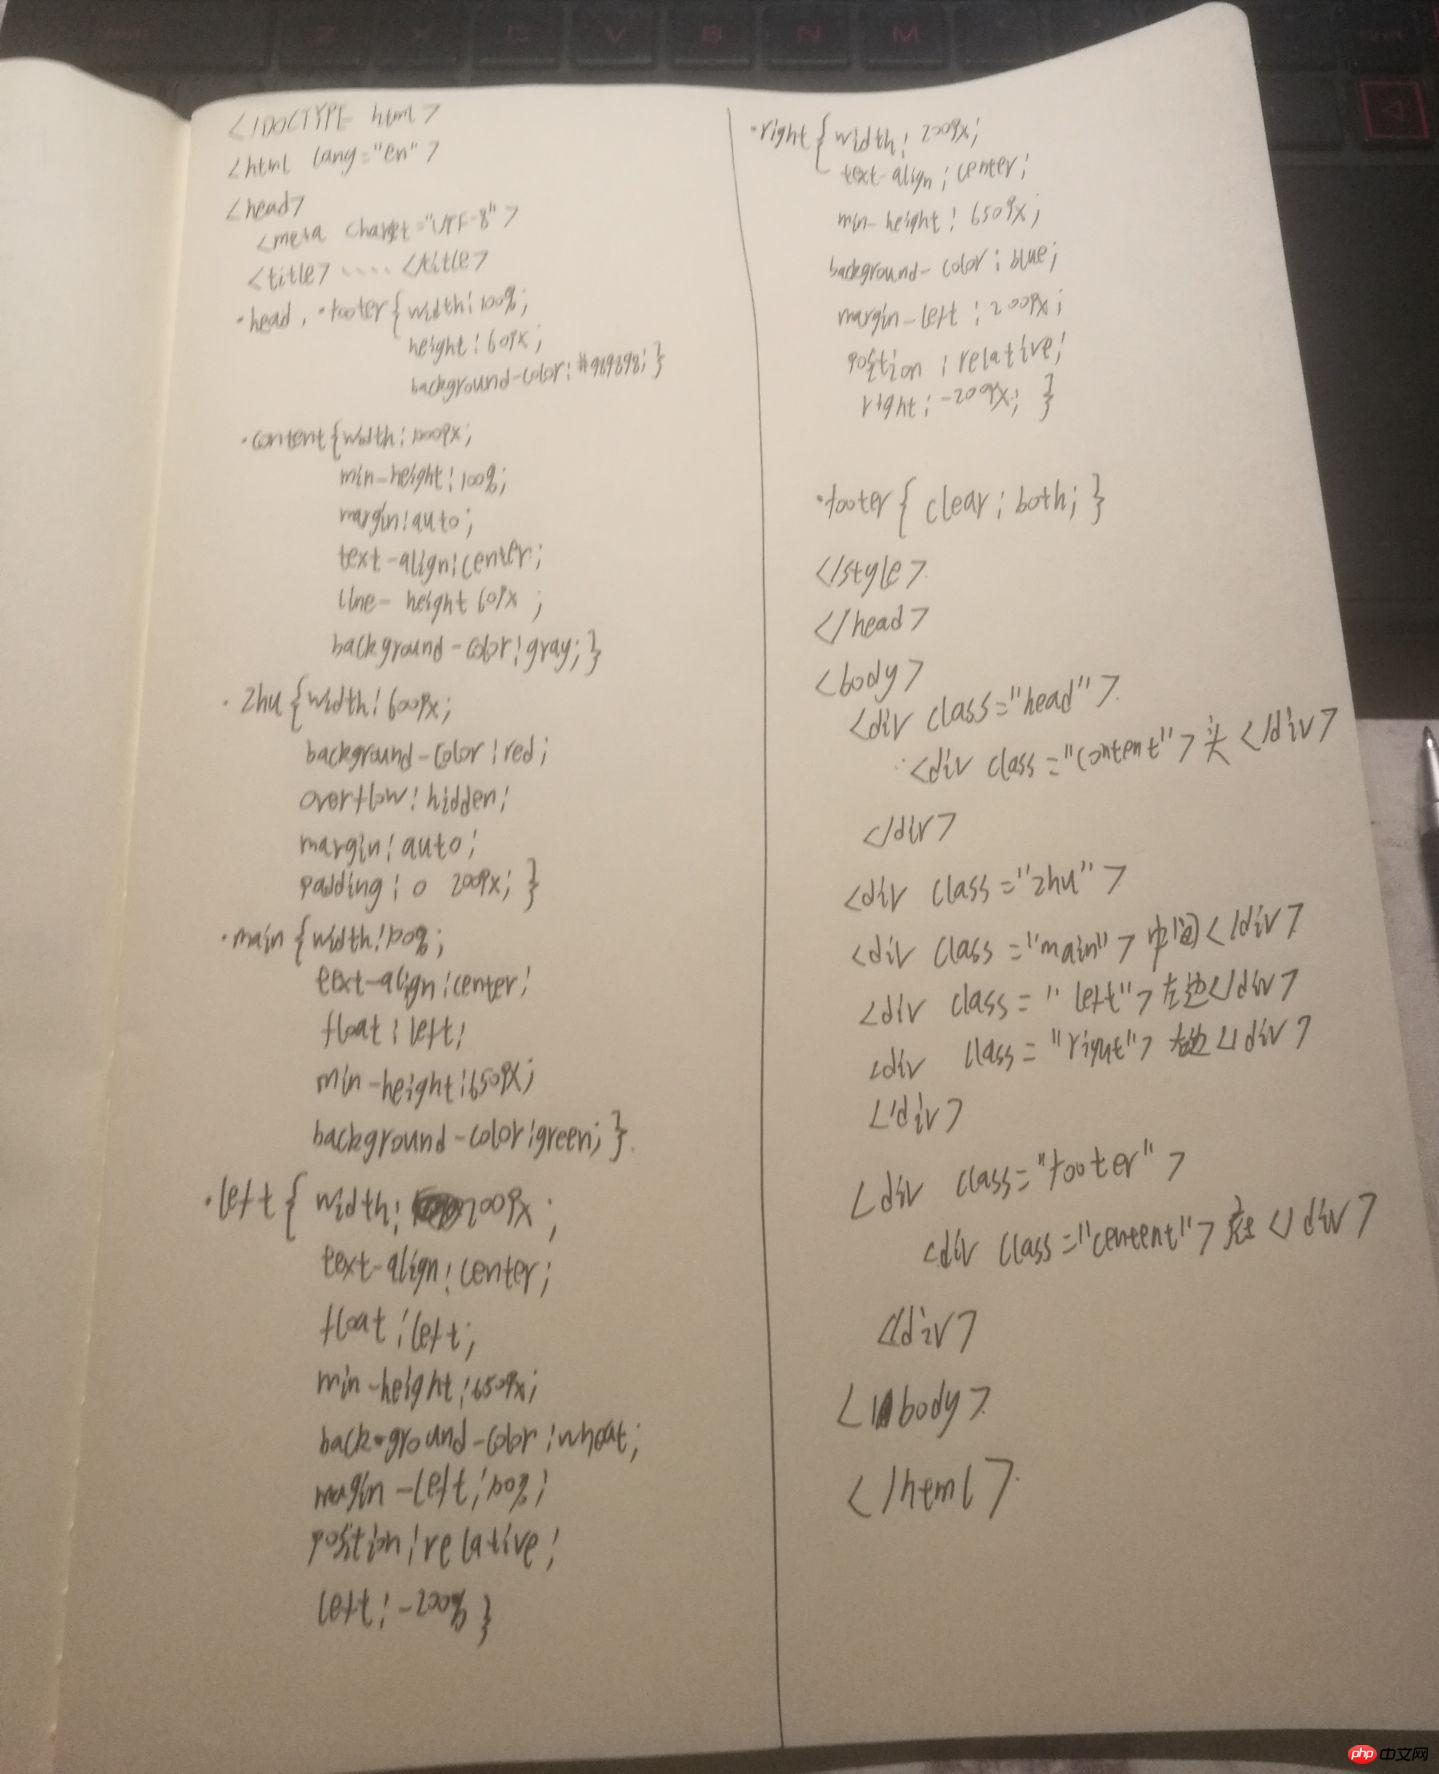 <!DOCTYPE html>
<html lang="en">
<head>
<meta charset="UTF-8">
<title>.....</title>
.head, .footer{width:100%;
height:60px;
background-color:#989898;}
.content{width:1000px;
min-height:100%;
margin:auto;
text-align:center;
line-height 60px;
background-color:gray;}
.zhu{width:600px;
background-color:red;
overflow:hidden;
margin:auto;
padding:0 200px;}
.main{width:100%;
text-align:center;
float:left;
min-height:650px;
background-color:green;}
.left{width:200px;
text-align:center;
float:left;
min-height:650px;
background-color:wheat;
margin-left:100%;
position:relative;
left:-200%}
.right{width:200px;
text-align:center;
min-height:650px;
background-color:blue;
margin-left:200px;
position:relative;
right:-200px;}
.footer{clear:both;}
</style>
</head>
<body>
<div class="head">
<div class="content">头</div>
</div>
<div class="zhu">
<div class="main">中间</div>
<div class="left">左边</div>
<div class="right">右边</div>
</div>
<div class="footer">
<div class="content">底</div>
</div>
</body>
</html>
Z X C V B N M
php 中文网